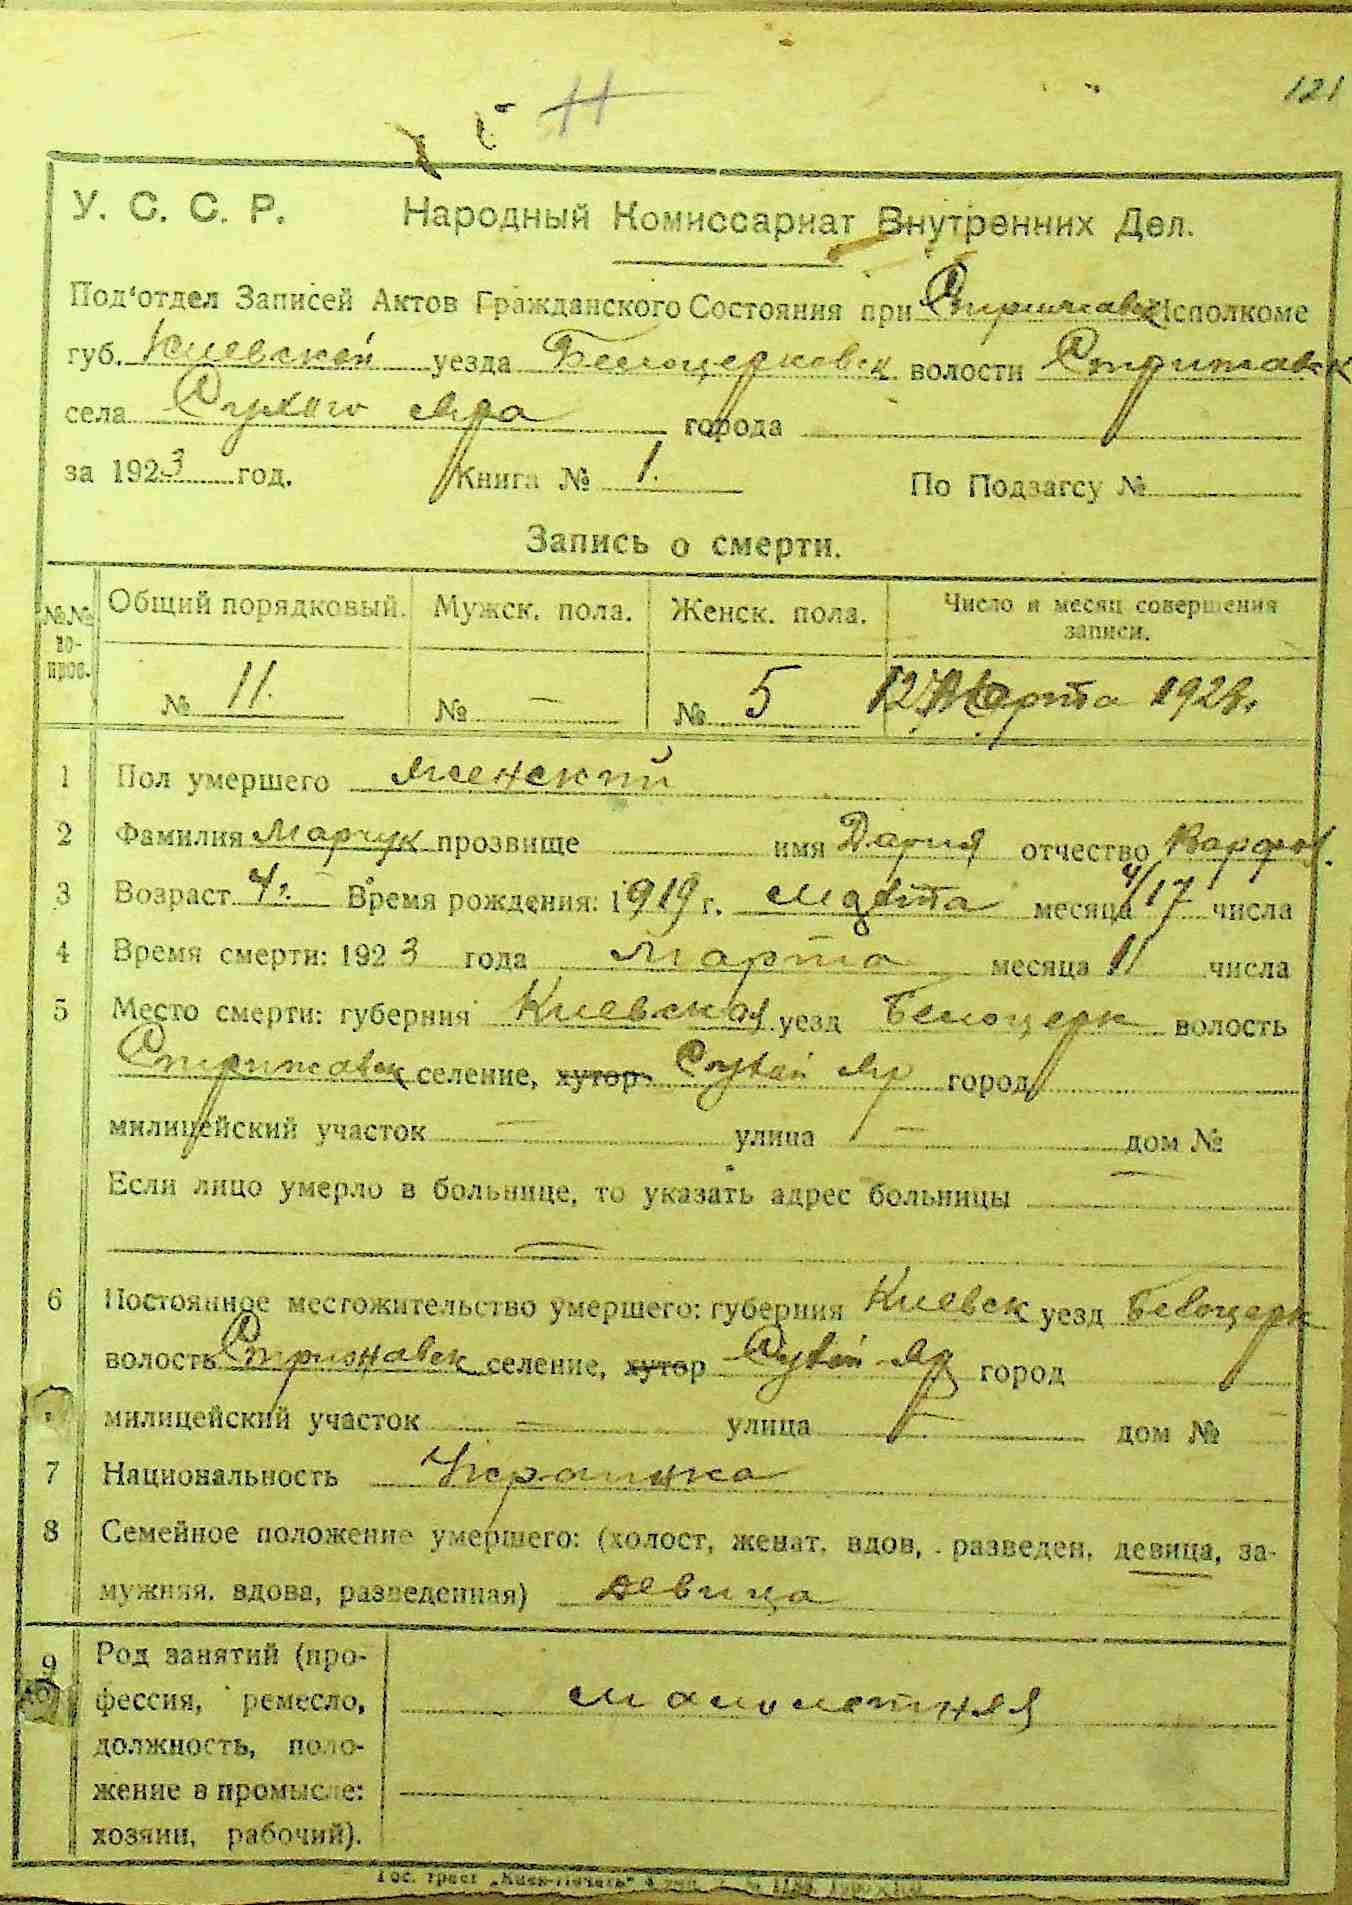 121
11
У. С. С. Р. Народный Комиссариат Внутренних Дел.
Под'отдел Записей Актов Гражданского Состояния при Стрижавск Исполкоме
губ. Киевской уезда Белоцерковск волости Стрижавск
села Сухого Яра города
за 1923 год. Книга № 1. По Подзагсу №
Запись о смерти.
№№ по- Общий порядковый. Мужск. пола. Женск. пола. Число и месяц совершения
записи.
№ 11. № — № 5 12 Марта 1923г.
1 Пол умершего Женский
2 Фамилия Марчук прозвище имя Дария отчество Варфол.
3 Возраст 4г. Время рождения: 1919 г. Марта месяца 4/17 числа
4 Время смерти: 1923 года Марта месяца 11 числа
5 Место смерти: губерния Киевская уезд Белоцерк волость
Стрижавск селение, хутор Сухой Яр город
милицейский участок — улица — дом №
Если лицо умерло в больнице, то указать адрес больницы —
—
6 Постоянное местожительство умершего: губерния Киевск уезд Белоцерк
волость Стрижавск селение, хутор Сухой-Яр город
милицейский участок — улица — дом №
7 Национальность Украинка
8 Семейное положение умершего: (холост, женат, вдов, разведен, девица, за-
мужняя, вдова, разведенная) девица
9 Род занятий (про-
фессия, ремесло, малолетняя
должность, поло-
жение в промысле:
хозяин, рабочий).
Гос. трест „Киев-Печать"